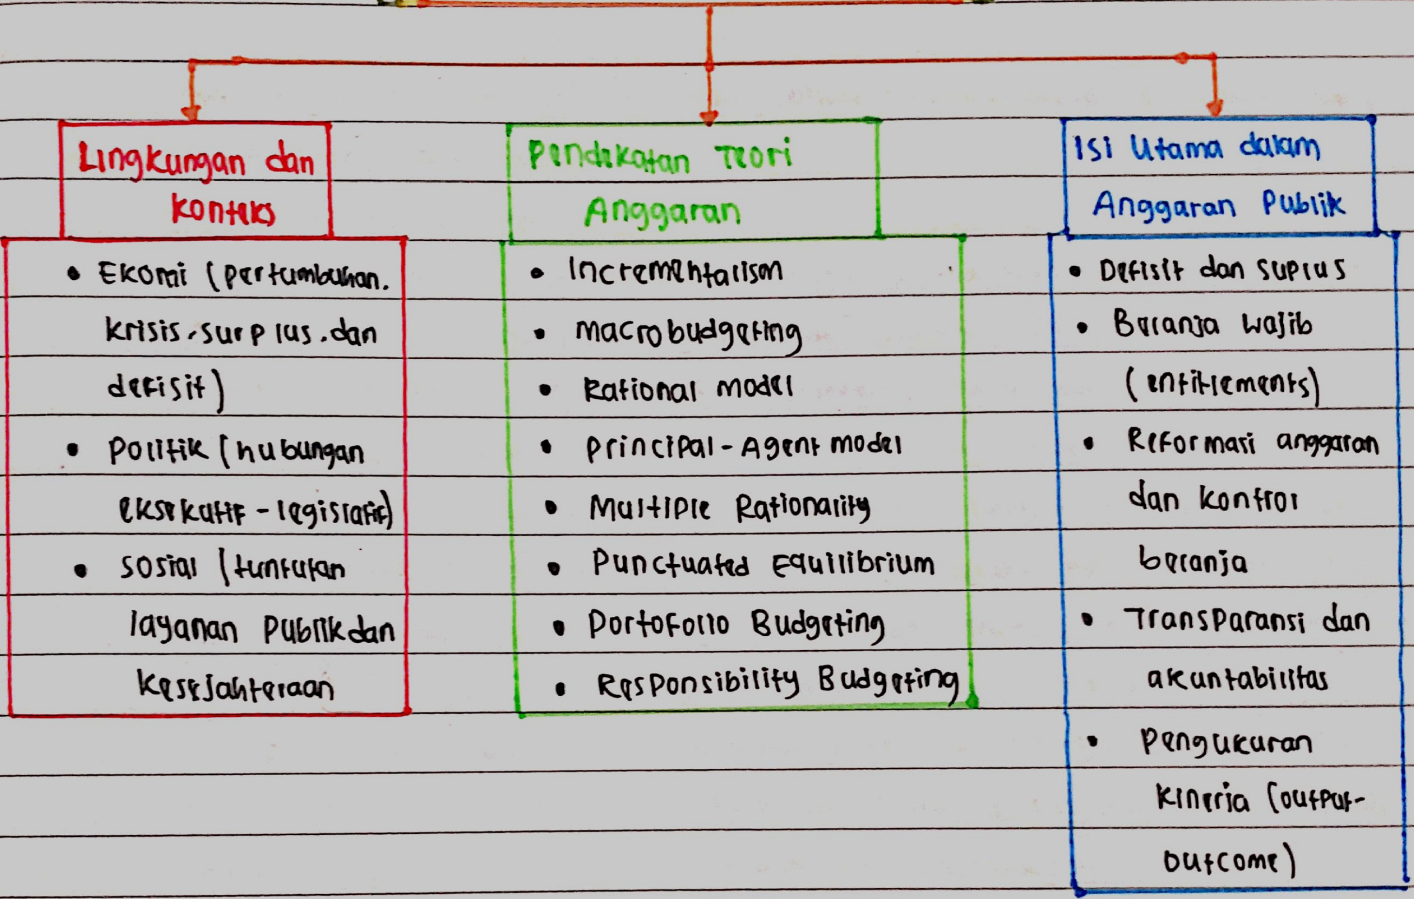 Lingkungan dan
konteks
• Ekomi (pertumbuhan.
krisis, surplus. dan
defisit)
• politik (hubungan
eksekutif - legislatif)
• sosial (tuntutan
layanan publik dan
kesejahteraan
Pendekatan Teori
Anggaran
• Incrementalism
• macrobudgeting
• Rational model
• principal - Agent model
• Multiple Rationality
• Punctuated Equilibrium
• Portofolio Budgeting
• Responsibility Budgeting
Isi Utama dalam
Anggaran Publik
• Defisit dan suplus
• Belanja wajib
(entitlements)
• Reformasi anggaran
dan kontrol
belanja
• Transparansi dan
akuntabilitas
• Pengukuran
kinerja (output-
outcome)